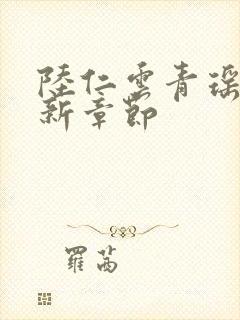 陸仁雲青瑶
新章節
羅茜